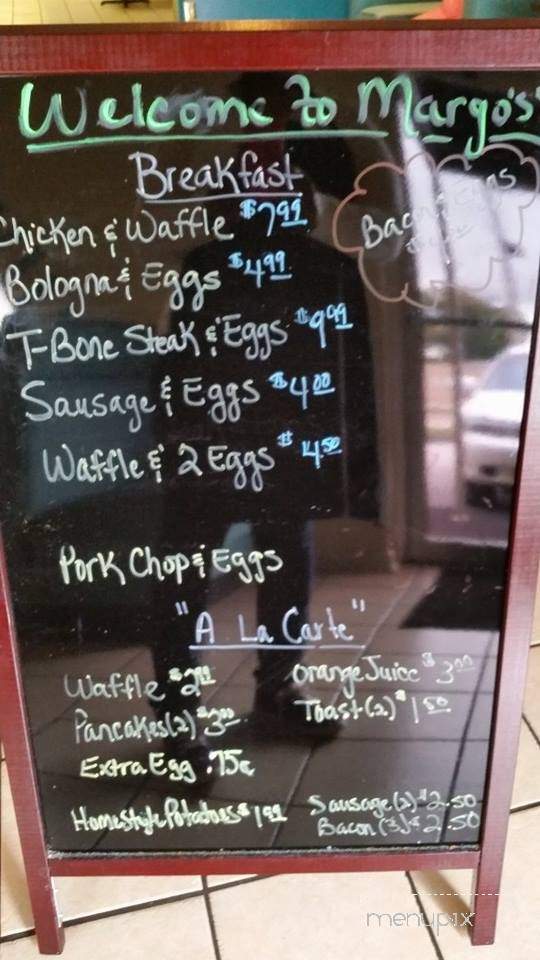 Welcome to Margo's
Breakfast
Chicken & Waffle $7.99
Bacon & Eggs
Bologna & Eggs $4.99
T-Bone Steak & Eggs $9.99
Sausage & Eggs $4.00
Waffle & 2 Eggs $4.50
Pork Chop & Eggs
"A La Carte"
Waffle $2.00
Orange Juice $3.00
Pancakes(2) $3.00
Toast(2) $1.50
Extra Egg .75¢
Homestyle Potatoes $1.99
Sausage(2) $2.50
Bacon(3) $2.50
menupix